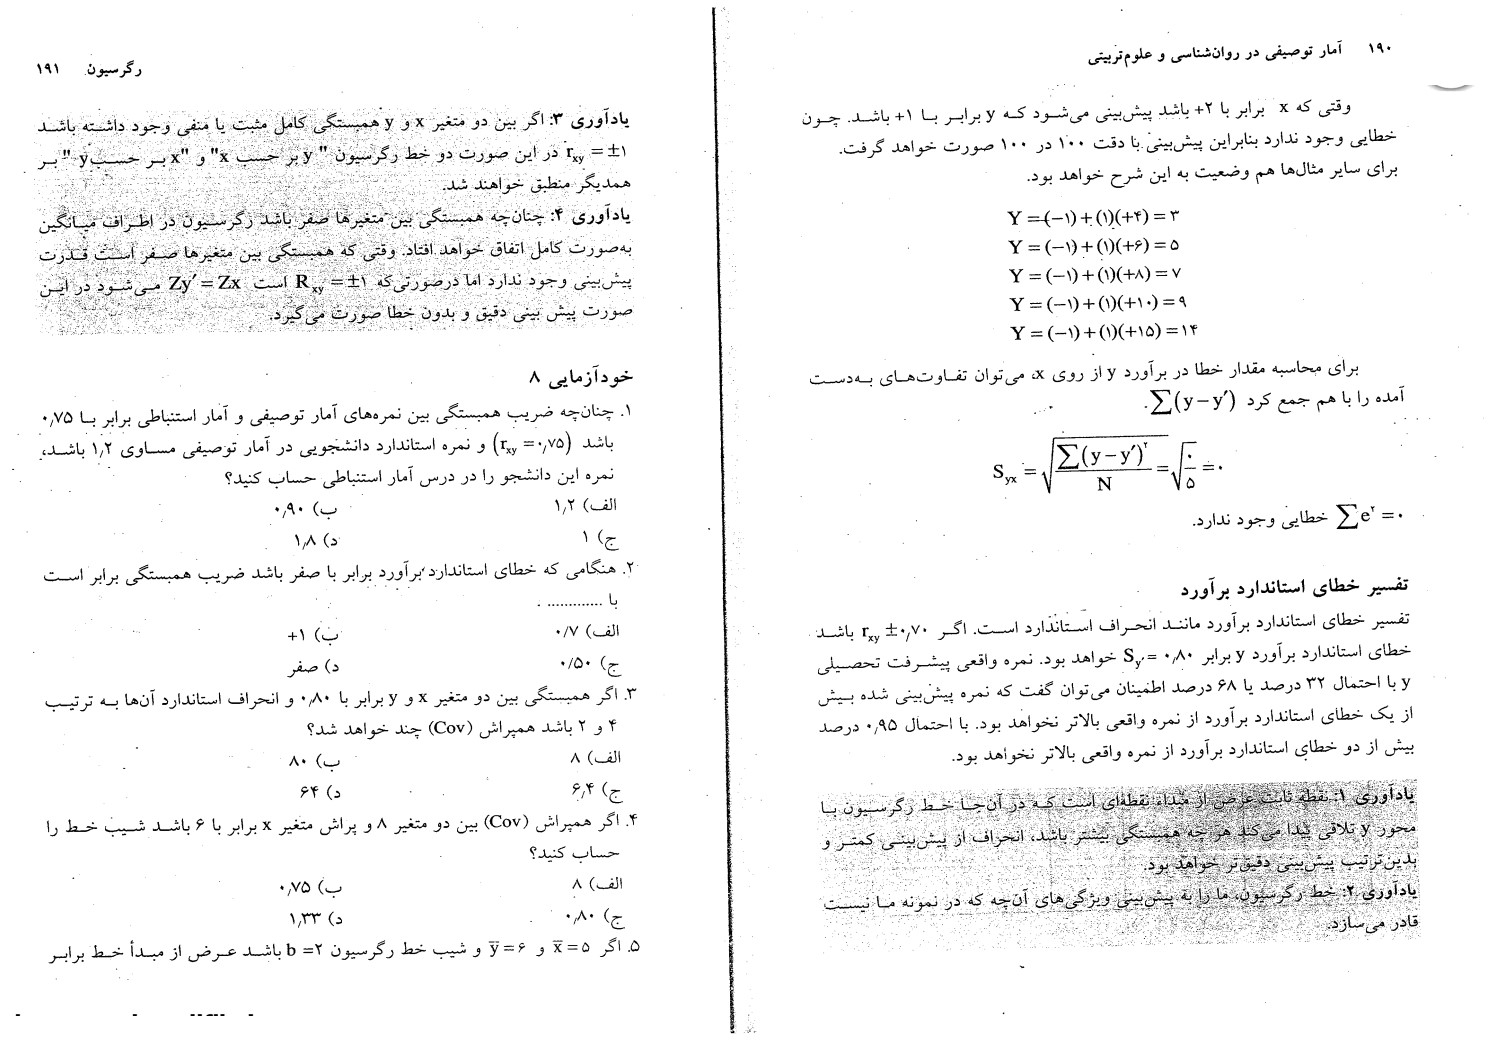 ۱۹۰ آمار توصیفی در روان‌شناسی و علوم‌تربیتی
وقتی که x برابر با ۲+ باشد پیش‌بینی می‌شود که y برابر با ۱+ باشد. چون
خطایی وجود ندارد بنابراین پیش‌بینی با دقت ۱۰۰ در ۱۰۰ صورت خواهد گرفت.
برای سایر مثال‌ها هم وضعیت به این شرح خواهد بود.
Y = (−۱) + (۱)(+۴) = ۳
Y = (−۱) + (۱)(+۶) = ۵
Y = (−۱) + (۱)(+۸) = ۷
Y = (−۱) + (۱)(+۱۰) = ۹
Y = (−۱) + (۱)(+۱۵) = ۱۴
برای محاسبه مقدار خطا در برآورد y از روی x، می‌توان تفاوت‌های به‌دست
آمده را با هم جمع کرد ∑(y − y′).
S_yx = √(∑(y − y′)^۲ / N) = √(۰/۵) = ۰
∑e^۲ = ۰ خطایی وجود ندارد.
تفسیر خطای استاندارد برآورد
تفسیر خطای استاندارد برآورد مانند انحراف استاندارد است. اگر r_xy ±۰٫۷۰ باشد
خطای استاندارد برآورد y برابر S_y′ = ۰٫۸۰ خواهد بود. نمره واقعی پیشرفت تحصیلی
y با احتمال ۳۲ درصد یا ۶۸ درصد اطمینان می‌توان گفت که نمره پیش‌بینی شده بیش
از یک خطای استاندارد برآورد از نمره واقعی بالاتر نخواهد بود. با احتمال ۰٫۹۵ درصد
بیش از دو خطای استاندارد برآورد از نمره واقعی بالاتر نخواهد بود.
یادآوری ۱: نقطه ثابت عرض از مبداء نقطه‌ای است که در آن‌جا خط رگرسیون با
محور y تلاقی پیدا می‌کند هر چه همبستگی بیشتر باشد، انحراف از پیش‌بینی کمتر و
بدین‌ترتیب پیش‌بینی دقیق‌تر خواهد بود.
یادآوری ۲: خط رگرسیون، ما را به پیش‌بینی ویژگی‌های آن‌چه که در نمونه ما نیست
قادر می‌سازد.
رگرسیون ۱۹۱
یادآوری ۳: اگر بین دو متغیر x و y همبستگی کامل مثبت یا منفی وجود داشته باشد
r_xy = ±۱ در این صورت دو خط رگرسیون " y بر حسب x" و "x بر حسب y " بر
همدیگر منطبق خواهند شد.
یادآوری ۴: چنان‌چه همبستگی بین متغیرها صفر باشد رگرسیون در اطراف میانگین
به‌صورت کامل اتفاق خواهد افتاد. وقتی که همبستگی بین متغیرها صفر است قدرت
پیش‌بینی وجود ندارد اما درصورتی‌که R_xy = ±۱ است Zy′ = Zx می‌شود در این
صورت پیش بینی دقیق و بدون خطا صورت می‌گیرد.
خودآزمایی ۸
۱. چنان‌چه ضریب همبستگی بین نمره‌های آمار توصیفی و آمار استنباطی برابر با ۰٫۷۵
باشد (r_xy = ۰٫۷۵) و نمره استاندارد دانشجویی در آمار توصیفی مساوی ۱٫۲ باشد،
نمره این دانشجو را در درس آمار استنباطی حساب کنید؟
الف) ۱٫۲ ب) ۰٫۹۰
ج) ۱ د) ۱٫۸
۲. هنگامی که خطای استاندارد برآورد برابر با صفر باشد ضریب همبستگی برابر است
با ............. .
الف) ۰/۷ ب) ۱+
ج) ۰/۵۰ د) صفر
۳. اگر همبستگی بین دو متغیر x و y برابر با ۰٫۸۰ و انحراف استاندارد آن‌ها به ترتیب
۴ و ۲ باشد همپراش (Cov) چند خواهد شد؟
الف) ۸ ب) ۸۰
ج) ۶٫۴ د) ۶۴
۴. اگر همپراش (Cov) بین دو متغیر ۸ و پراش متغیر x برابر با ۶ باشد شیب خط را
حساب کنید؟
الف) ۸ ب) ۰٫۷۵
ج) ۰٫۸۰ د) ۱٫۳۳
۵. اگر x̄ = ۵ و ȳ = ۶ و شیب خط رگرسیون b = ۲ باشد عرض از مبدأ خط برابر